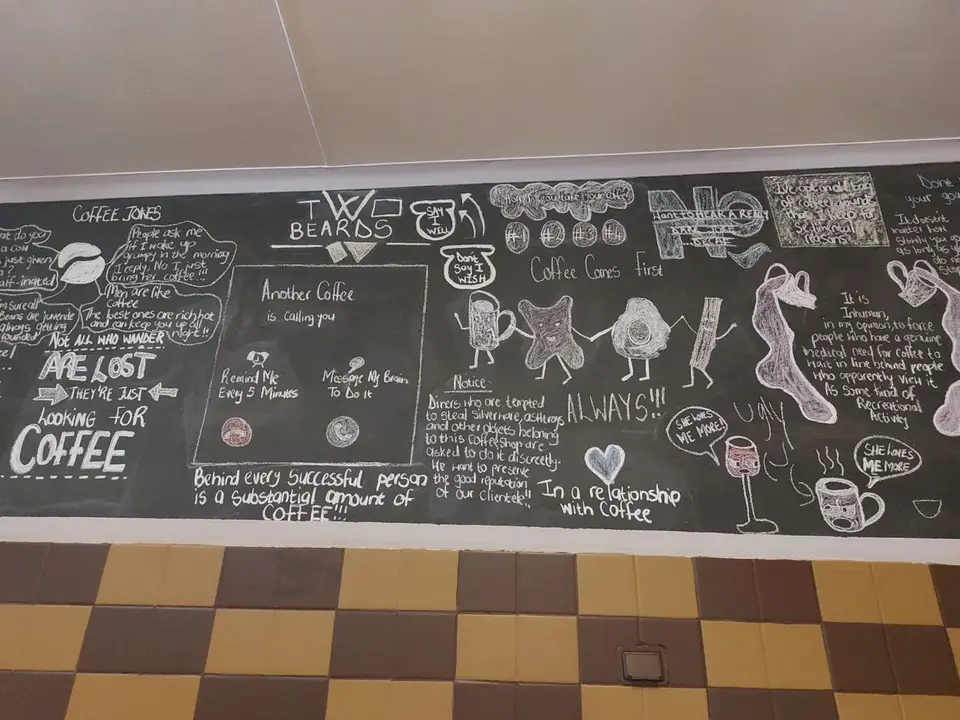 COFFEE JONES
People ask me
if I wake up
grumpy in the morning
I reply, No I just
bring her coffee...!!!
Men are like
coffee
The best ones are rich, hot
and can keep you up all
night!!
Not ALL WHO WANDER
ARE LOST
THEY'RE JUST
LOOKING FOR
COFFEE
TWO
BEARDS
SAY
I
WILL
Don't
Say I
WISH
Another Coffee
is calling you
Remind Me
Every 5 Minutes
Message My Brain
To Do It
Behind every Successful person
is a Substantial amount of
COFFEE!!!
#1
#2
#3
#4
Coffee Comes First
ALWAYS!!!
Notice
Diners who are tempted
to steal silverware, ashtrays
and other objects belonging
to this coffeeshop are
asked to do it discreetly.
We want to preserve
the good reputation
of our Clientele!!
In a relationship
with Coffee
Want to HEAR A REALLY
DECAF
SHE LOVES
ME MORE!
UGLY
It is
Inhuman,
in my opinion, to force
people who have a genuine
medical need for coffee to
wait in line behind people
who apparently view it
As some kind of
Recreational
Activity
SHE LOVES
ME MORE